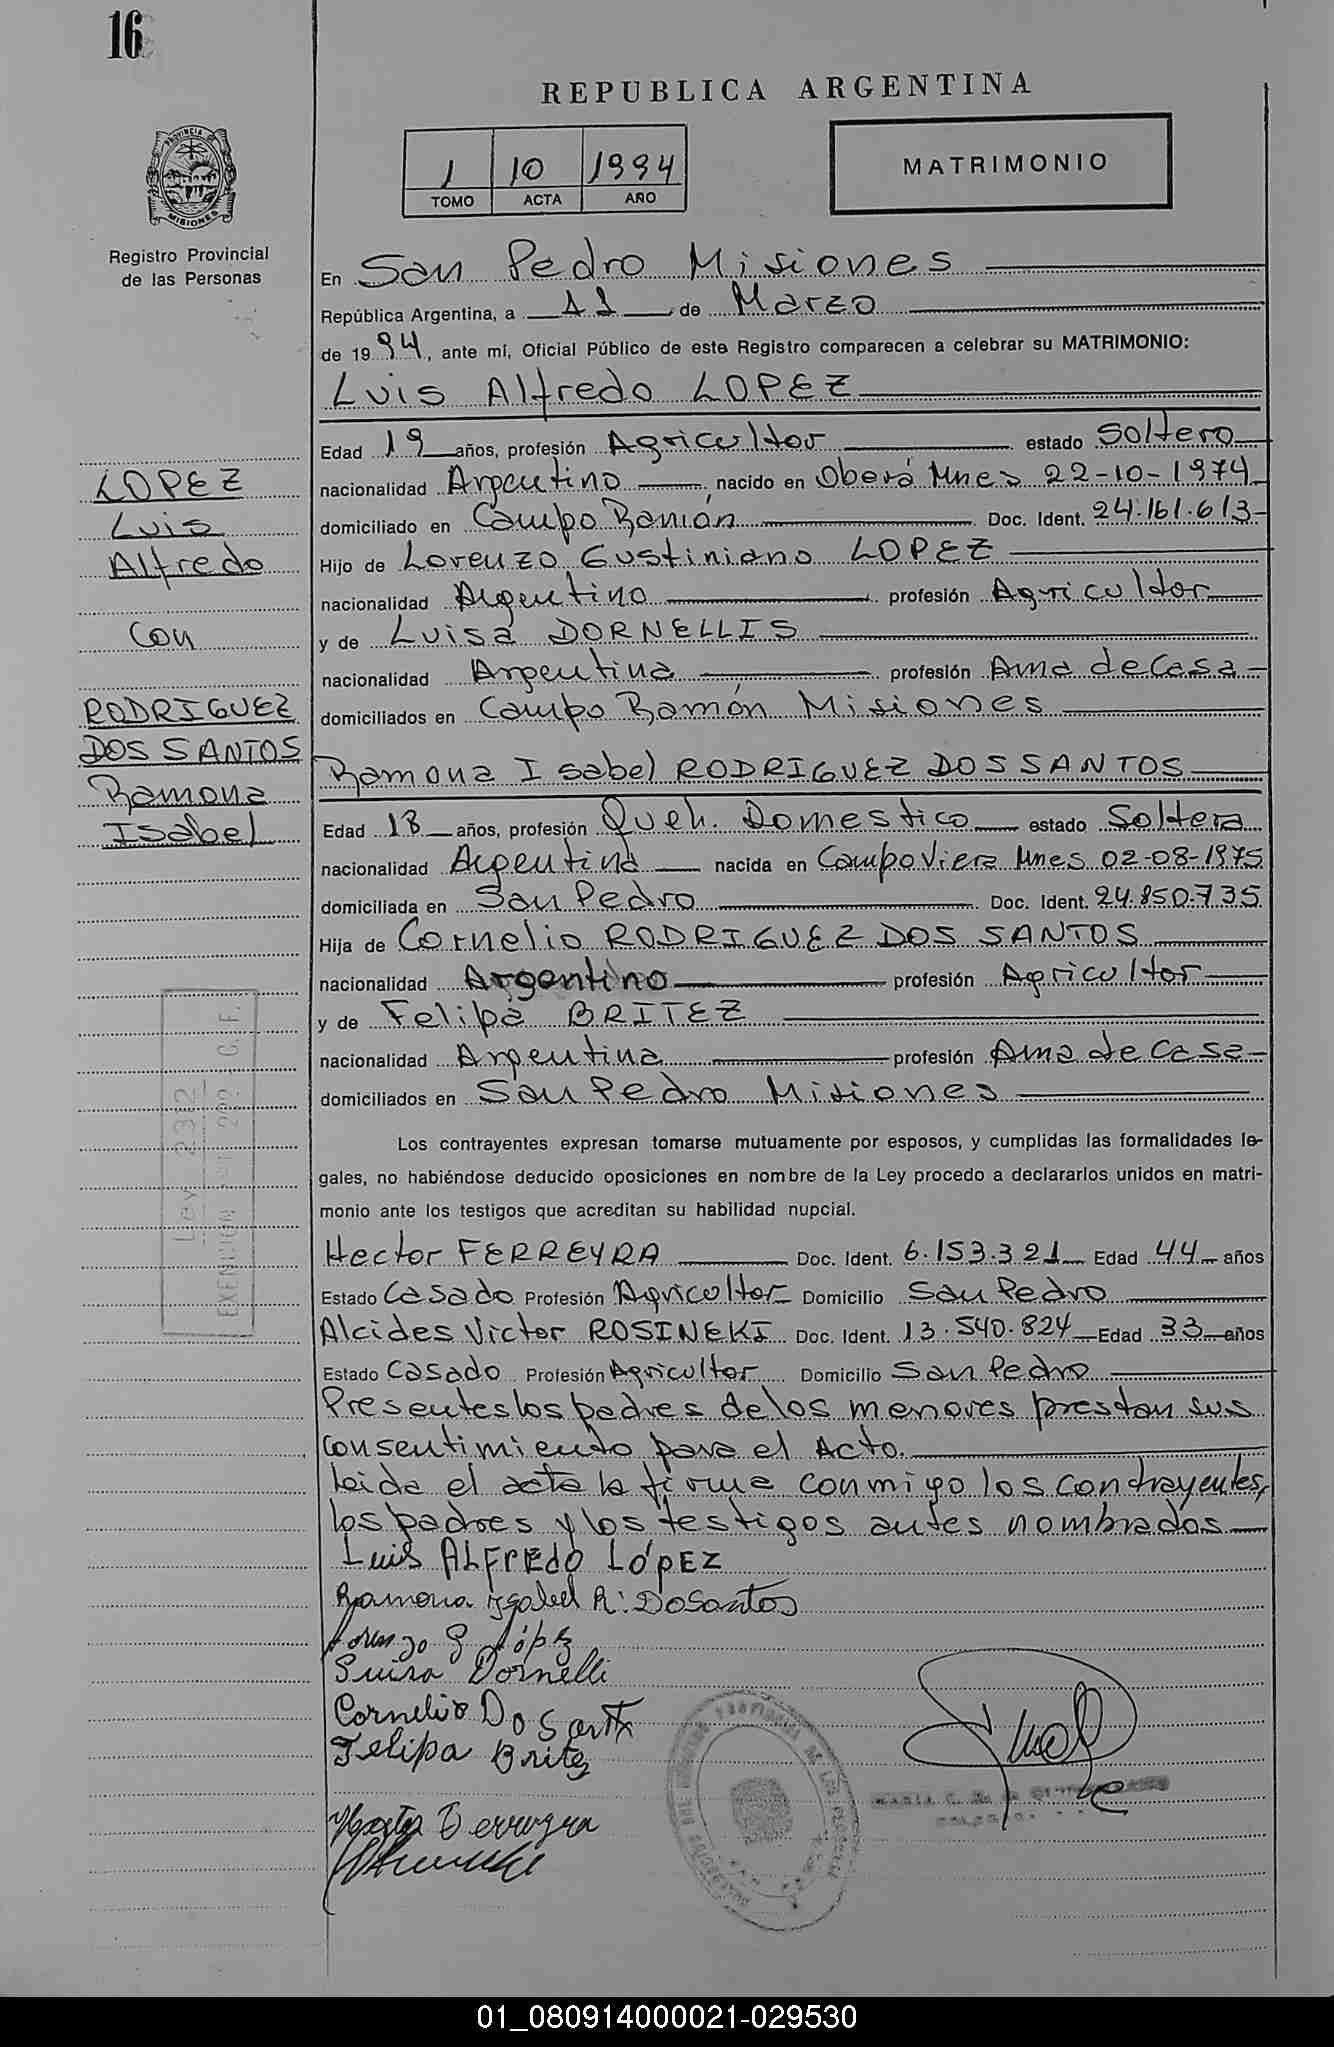 16
REPUBLICA ARGENTINA
1 10 1994
TOMO ACTA AÑO
MATRIMONIO
PROVINCIA DE
MISIONES
Registro Provincial
de las Personas
En San Pedro Misiones
República Argentina, a 11 de Marzo
de 1994, ante mí, Oficial Público de este Registro comparecen a celebrar su MATRIMONIO:
Luis Alfredo LOPEZ
Edad 19 años, profesión Agricultor estado Soltero
nacionalidad Argentino, nacido en Oberá Mnes 22-10-1974
domiciliado en Campo Ramón Doc. Ident. 24.161.613
Hijo de Lorenzo Gustiniano LOPEZ
nacionalidad Argentino profesión Agricultor
y de Luisa DORNELLIS
nacionalidad Argentina profesión Ama de Casa
domiciliados en Campo Ramón Misiones
LOPEZ
Luis
Alfredo
Con
RODRIGUEZ
DOS SANTOS
Ramona
Isabel
Ramona Isabel RODRIGUEZ DOS SANTOS
Edad 18 años, profesión Queh. Domestico estado Soltera
nacionalidad Argentina nacida en Campo Viera Mnes 02-08-1975
domiciliada en San Pedro Doc. Ident. 24.850.735
Hija de Cornelio RODRIGUEZ DOS SANTOS
nacionalidad Argentino profesión Agricultor
y de Felipa BRITEZ
nacionalidad Argentina profesión Ama de Casa
domiciliados en San Pedro Misiones
Ley 2312
EXENCION
Los contrayentes expresan tomarse mutuamente por esposos, y cumplidas las formalidades le-
gales, no habiéndose deducido oposiciones en nombre de la Ley procedo a declararlos unidos en matri-
monio ante los testigos que acreditan su habilidad nupcial.
Hector FERREYRA Doc. Ident. 6.153.321 Edad 44 años
Estado Casado Profesión Agricultor Domicilio San Pedro
Alcides Victor ROSINEKI Doc. Ident. 13.540.824 Edad 33 años
Estado Casado Profesión Agricultor Domicilio San Pedro
Presentes los padres de los menores prestan sus
consentimiento para el Acto.
Leida el acta la firma conmigo los contrayentes,
los padres y los testigos antes nombrados
Luis ALFREDO LÓPEZ
Ramona Ysabel R. DoSantos
Lorenzo G López
Luisa Dornelli
Cornelio Do Santo
Felipa Britez
01_080914000021-029530